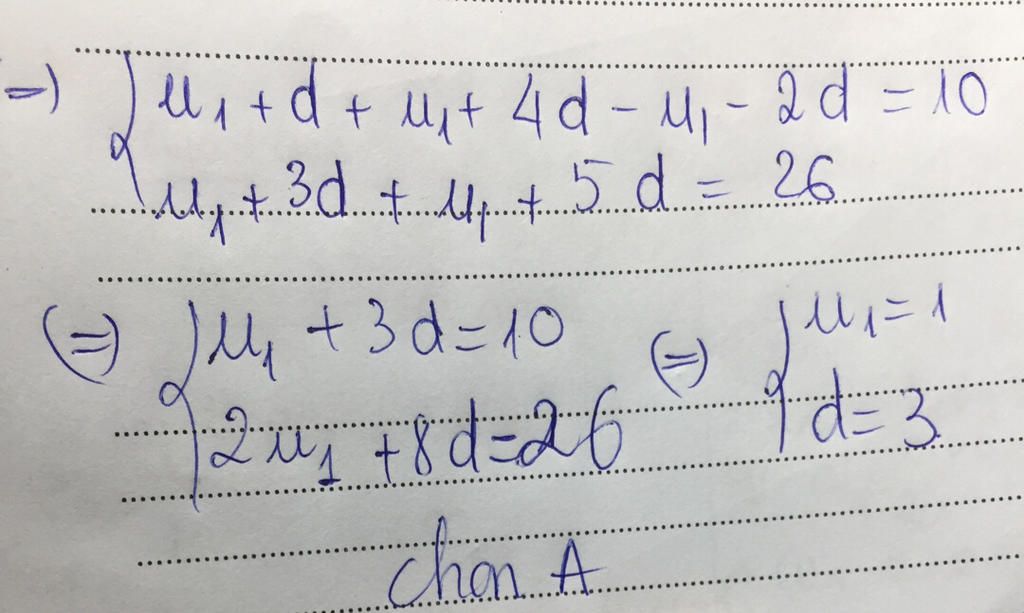 =) { u₁ + d + u₁ + 4d - u₁ - 2d = 10
u₁ + 3d + u₁ + 5d = 26
(=) { u₁ + 3d = 10 (=) { u₁ = 1
2u₁ + 8d = 26 d = 3
chọn A